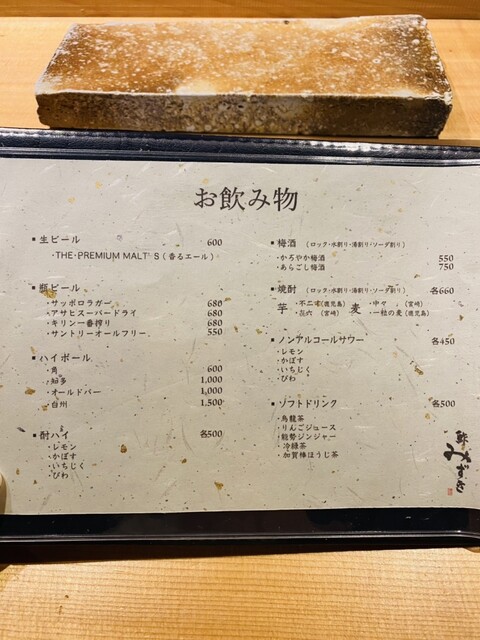 お飲み物
▪生ビール 600
・THE・PREMIUM MALT'S（香るエール）
▪瓶ビール
・サッポロラガー 680
・アサヒスーパードライ 680
・キリン一番搾り 680
・サントリーオールフリー 550
▪ハイボール
・角 600
・知多 1,000
・オールドパー 1,000
・白州 1,500
▪酎ハイ 各500
・レモン
・かぼす
・いちじく
・びわ
▪梅酒 （ロック・水割り・湯割り・ソーダ割り）
・かろやか梅酒 550
・あらごし梅酒 750
▪焼酎 （ロック・水割り・湯割り・ソーダ割り） 各660
芋 ・不二才（鹿児島） 麦 ・中々 （宮崎）
・㐂六 （宮崎） ・一粒の麦（鹿児島）
▪ノンアルコールサワー 各450
・レモン
・かぼす
・いちじく
・びわ
▪ソフトドリンク 各500
・烏龍茶
・りんごジュース
・能勢ジンジャー
・冷緑茶
・加賀棒ほうじ茶
鮓 みずき